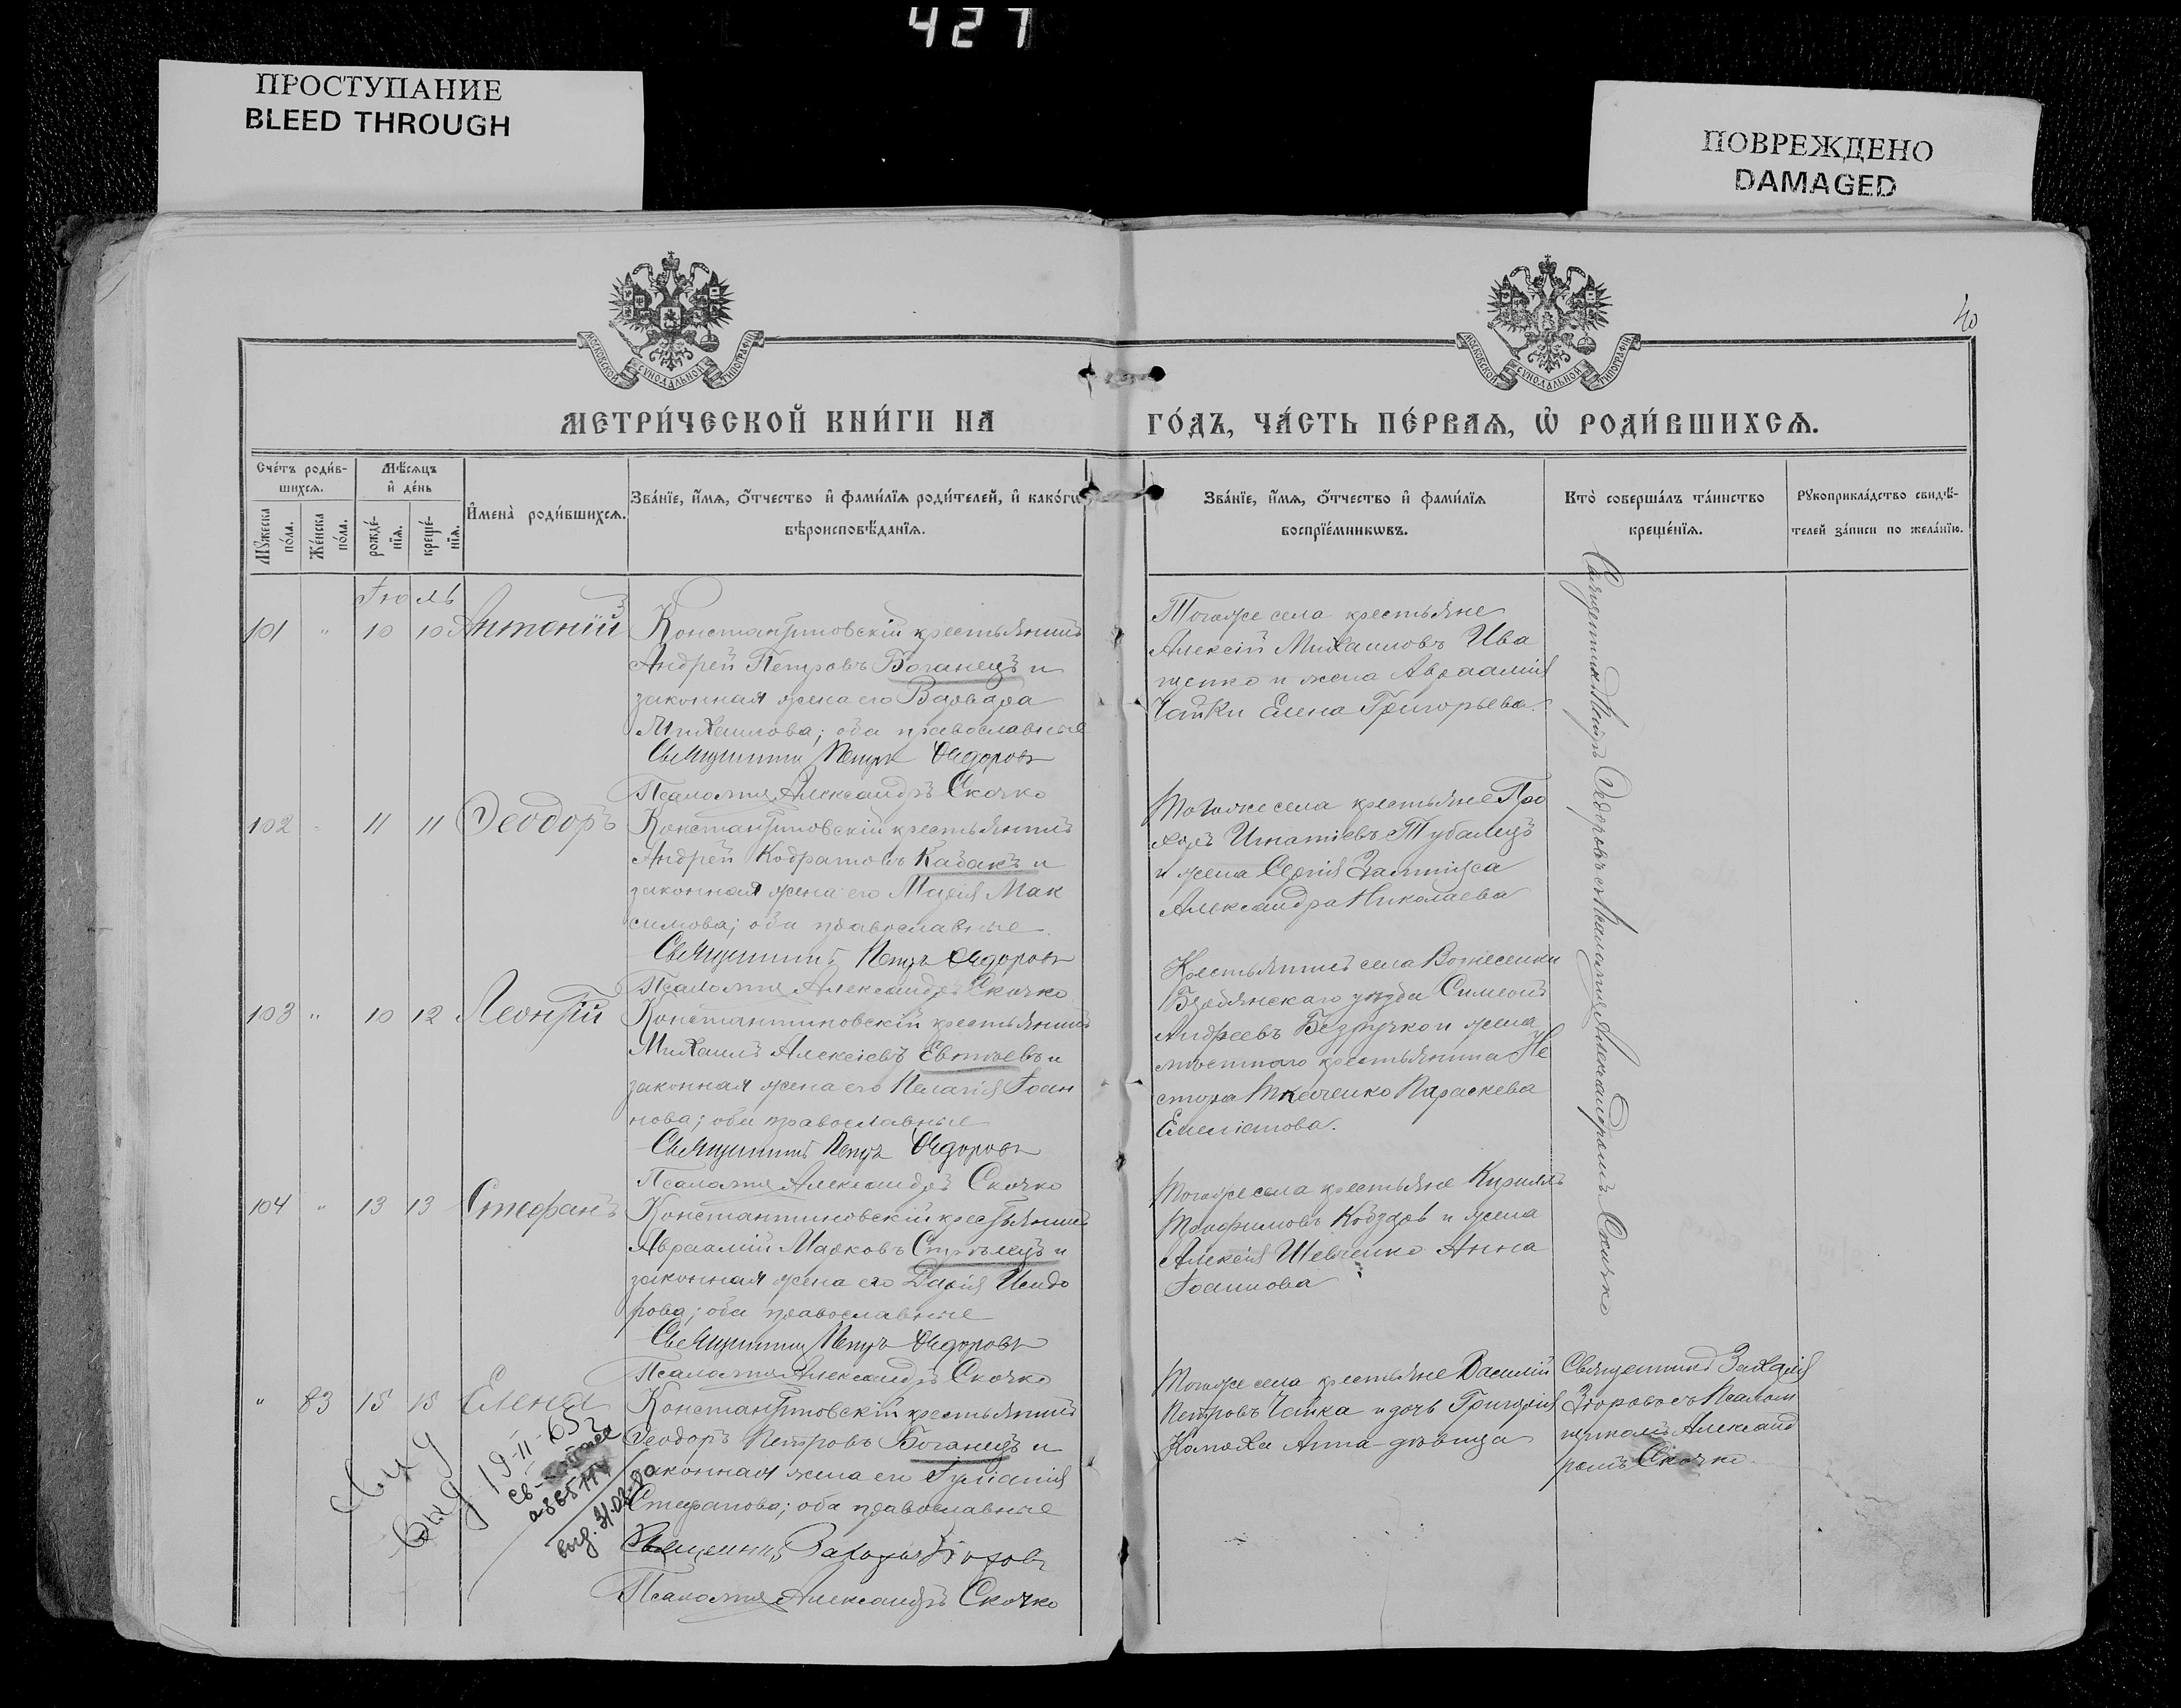 427
ПРОСТУПАНИЕ
BLEED THROUGH
ПОВРЕЖДЕНО
DAMAGED
40
МОСКОВСКОЙ СѴНОДАЛЬНОЙ ТИПОГРАФІИ
МОСКОВСКОЙ СѴНОДАЛЬНОЙ ТИПОГРАФІИ
МЕТРИ́ЧЕСКОЙ КНИ́ГИ НА
ГО́ДЪ, ЧА́СТЬ ПЕ́РВАѦ, Ѡ҆ РОДИ́ВШИХСѦ.
Сче́тъ роди́в-
шихсѧ.
Мꙋ́жеска по́ла.
Же́нска по́ла.
Мѣ́сѧцъ
и҆ де́нь
рожде́-нїѧ.
креще́-нїѧ.
И҆мена̀ роди́вшихсѧ.
Зва́нїе, и҆́мѧ, ѻ҆́тчество и҆ фами́лїѧ роди́телей, и҆ како́гѡ
вѣроисповѣ́данїѧ.
Зва́нїе, и҆́мѧ, ѻ҆́тчество и҆ фами́лїѧ
воспрїе́мникѡвъ.
Кто̀ соверша́лъ та́инство
креще́нїѧ.
Рꙋкоприкла́дство свидѣ́-
телей за́писи по жела́нїю.
Іюль
101 " 10 10 Антоній
Константиновскій крестьянинъ
Андрей Петровъ Боганецъ и
законная жена его Варвара
Михаилова; оба православные
Священникъ Петръ Ѳедоровъ
Псаломщ Александръ Скочко
Тогоже села крестьяне
Алексій Михаиловъ Ива
щенко и жена Авраамія
Чайки Елена Григорьева.
102 " 11 11 Ѳеодоръ
Константиновскій крестьянинъ
Андрей Кодратовъ Казакъ и
законная жена его Марія Мак
симова; оба православные
Священникъ Петръ Ѳедоровъ
Псаломщ Александръ Скочко
Тогоже села крестьяне Про
хоръ Игнатіевъ Тубалецъ
и жена Сергія
Александра Николаева
103 " 10 12 Леонтій
Константиновскій крестьянинъ
Михаилъ Алексіевъ Евтѣевъ и
законная жена его Пелагія Іоан
нова; оба православные
Священникъ Петръ Ѳедоровъ
Псаломщ Александръ Скочко
Крестьянинъ села Вознесенки
Бердянскаго уѣзда Симеонъ
Андреевъ Безручко и жена
мѣстнаго крестьянина Не
стора Ткаченко Параскева
Емеліанова.
104 " 13 13 Стефанъ
Константиновскій крестьянинъ
Авраамій Марковъ Стрѣлецъ и
законная жена его Дарія Исидо
рова; оба православные
Священникъ Петръ Ѳедоровъ
Псаломщ Александръ Скочко
Тогоже села крестьяне Кириллъ
Трофимовъ Кобзарь и жена
Алексія Шевченко Анна
Іоаннова
Священникъ Петръ Ѳедоровъ съ Псаломщ Александромъ Скочко
" 83 15 15 Елена
Константиновскій крестьянинъ
Ѳеодоръ Петровъ Боганецъ и
законная жена его Іуліанія
Стефанова; оба православные
Священникъ Захарія
Псаломщ Александръ Скочко
Тогоже села крестьяне Василій
Петровъ Чайка и дочь Григорія
Анна дѣвица
Священникъ Захарія
съ Псалом
щикомъ Александ
ромъ Скочко.
выд 19-11-65г
выд. 31.03.80